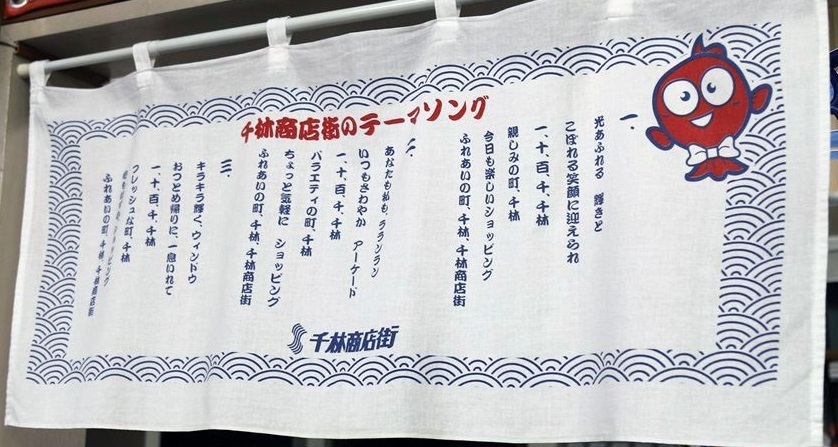 千林商店街のテーマソング
一.
光あふれる 輝きと
こぼれる笑顔に迎えられ
一、十、百、千、千林
親しみの町、千林
今日も楽しいショッピング
ふれあいの町、千林、千林商店街
二.
あなたも私も、ラランラン
いつもさわやか アーケード
一、十、百、千、千林
バラエティの町、千林
ちょっと気軽に ショッピング
ふれあいの町、千林、千林商店街
三.
キラキラ輝く、ウィンドウ
おつとめ帰りに、一息いれて
一、十、百、千、千林
フレッシュな町、千林
ショッピング
ふれあいの町、千林、千林商店街
千林商店街